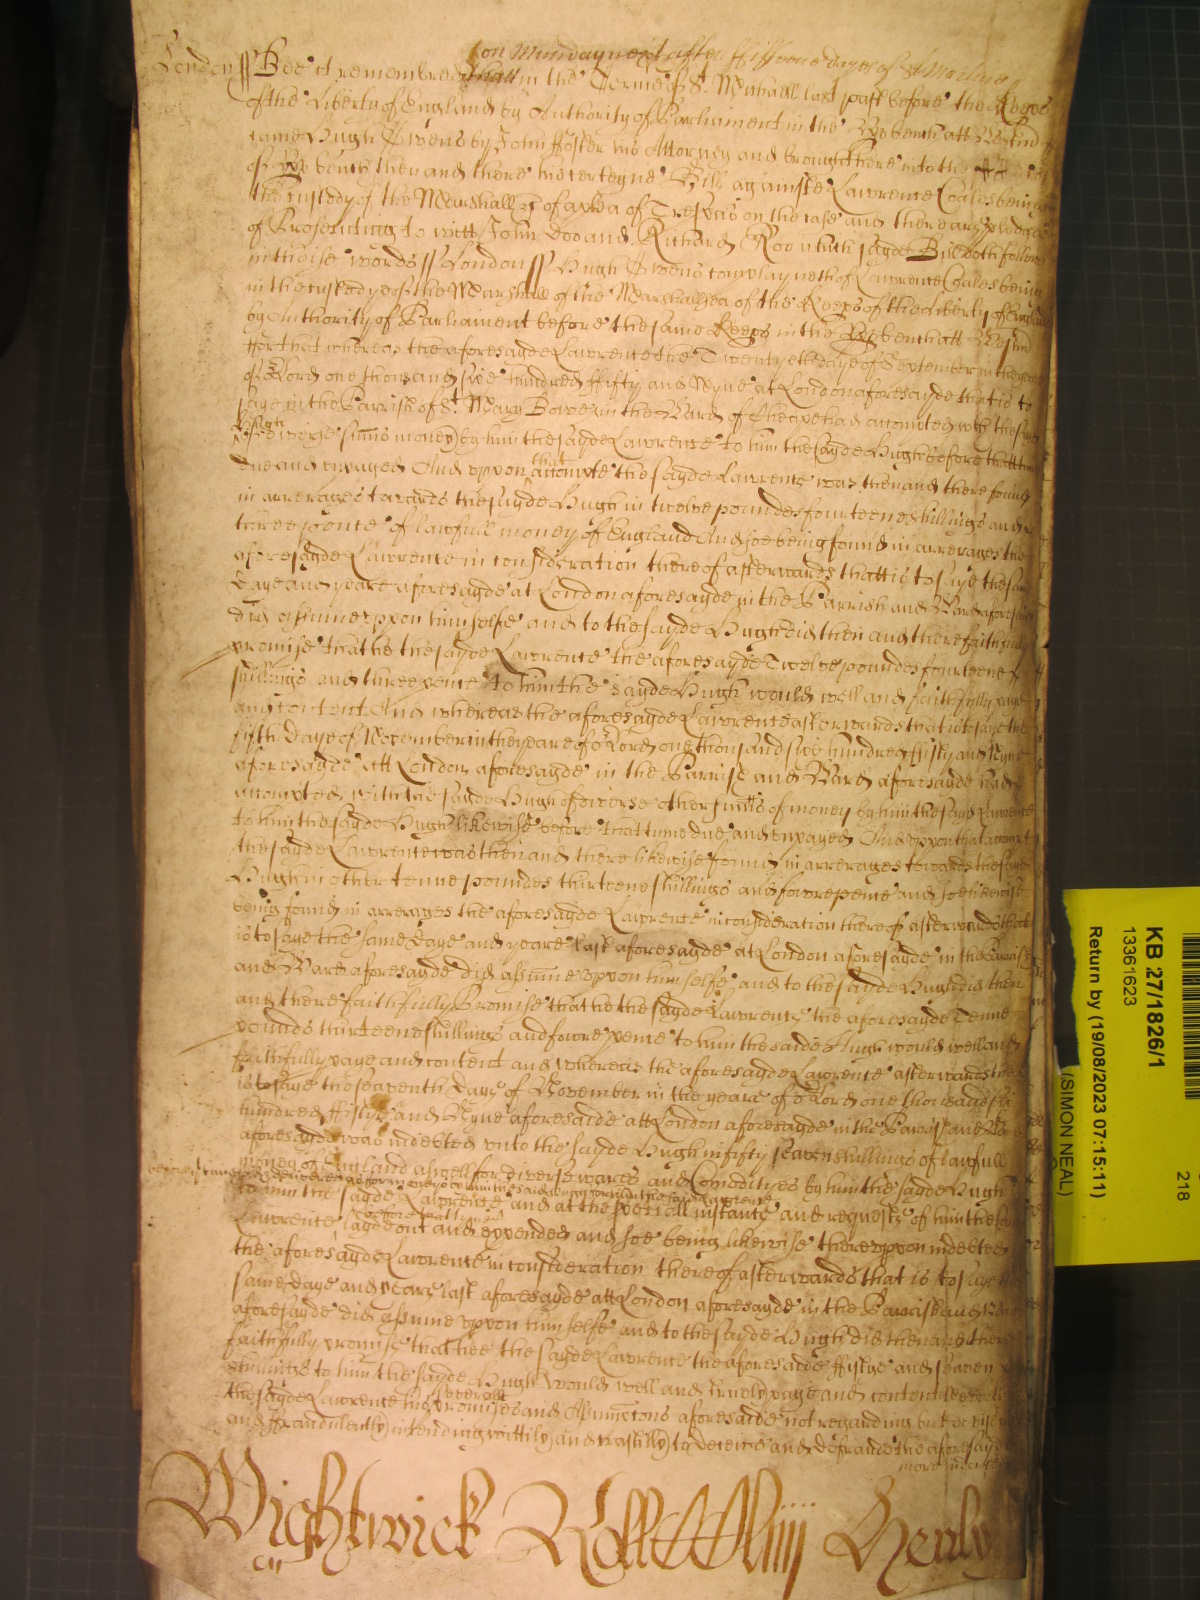 on Munday next after fifteene dayes of St Martine
London ss Bee it remembred that in the Terme of St. Michaell last past before the Keeps
of the Liberty of England by Authority of Parliament in the Vpp bench att Westm
came Hugh Owens by John Foster his Attorney and brought here into the
of Vpp bench then and there his certeyne Bill againste Lawrence Coales being
the custody of the Marshall of a plea of Trespas on the case and there are pledges
of Prosecuting to witt John Doo and Richard Roo which sayde Bill doth follow
in theise words ss London ss Hugh Owens complayneth of Lawrence Coales being
in the custody of the Marshall of the Marshallsea of the Keeps of the Liberty of England
by Authority of Parliament before the same Keeps in the Vpp bench att Westm
ffor that whereas the aforesayde Lawrence the Twentyeth daye of September in the yeare
of o Lord one thousand six hundred ffifty and Nyne at London aforesayde that is to
saye in the Parrish of St. Mary Bowe in the Ward of Cheape had accompted wth the sayde
Hugh of diverse sums money by him the sayde Lawrence to him the sayde Hugh before that tyme
due and vnpayed And vpon that accompte the sayde Lawrence was then and there found
in arrerages towards the sayde Hugh in twelve poundes fourteene shillings and
three pence of lawfull money of England And soe being found in arrerages the
aforesayde Lawrence in consideration thereof afterwards that is to saye the same
daye and yeare aforesayde at London aforesayde in the Parrish and Ward aforesayde
did assume vpon himselfe and to the sayde Hugh did then and there faithfully
promise that he the sayde Lawrence the aforesayde Twelve poundes fourteene
shillings and three pence to him the sayde Hugh would well and faithfully paye
and content And whereas the aforesayde Lawrence afterwards that is to saye the
fifth daye of November in the yeare of o Lord one thousand six hundred ffifty and Nyne
aforesayde att London aforesayde in the Parrish and Ward aforesayde had
accompted with the sayde Hugh of diverse other sumes of money by him the sayd Lawrence
to him the sayde Hugh likewise before that tyme due and vnpayed And vpon that accompt
the sayde Lawrence was then and there likewise found in arrerages towards the sayde
Hugh in other tenne poundes thirteene shillings and fowre pence and soe likewise
being found in arrerages the aforesayde Lawrence in consideration thereof afterwards that
is to saye the same daye and yeare last aforesayde at London aforesayde in the Parrish
and Ward aforesayde did assume vpon himselfe and to the sayde Hugh did then
and there faithfully Promise that he the sayde Lawrence the aforesayde Tenne
pounds thirteene shillings and fowre pence to him the saide Hugh would well and
faithfully paye and content and whereas the aforesayde Lawrence afterwards that
is to saye the seaventh daye of November in the yeare of o Lord one thousand six
hundred ffiftye and Nyne aforesaide att London aforesayde in the Parrish and Ward
aforesayde was indebted vnto the sayde Hugh in fifty seaven shillings of lawfull
money of England aswell for diverse wares and Comodityes by him the sayde Hugh
to him the sayde Lawrence and at the speciall instance and request of him the sayde
Lawrence before that tyme sayde out and expended and soe being likewise therevpon indebted
the aforesayde Lawrence in consideration thereof afterwards that is to saye the
same daye and yeare last aforesayde att London aforesayde in the Parrish and Ward
aforesayde did assume vpon himselfe and to the sayde Hugh did then and there
faithfully promise that hee the sayde Lawrence the aforesaide ffiftye and seaven
shillings to him the sayde Hugh would well and truely paye and content Neverthelesse
the sayde Lawrence his severall promises and Assumptons aforesaide not regarding but devising
and ffraudulently intending wittily and craftilly to deceive and defraude the aforesayde
Wightwick Roll CCCCliiij Henly
KB 27/1826/1
13361623
Return by (19/08/2023 07:15:11)
(SIMON NEAL)
218